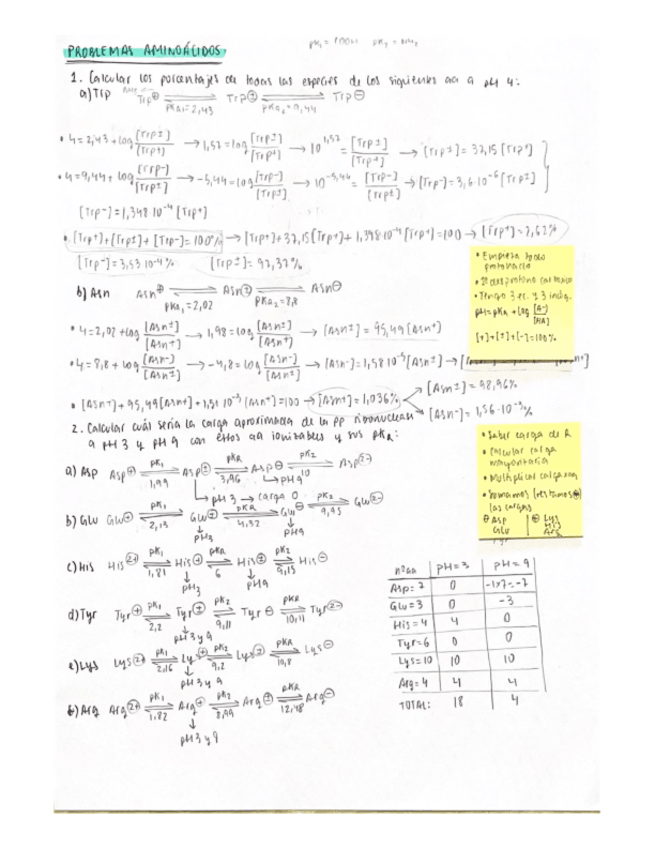 pK₁ = COOH pK₂ = NH₂
PROBLEMAS AMINOÁCIDOS
1. Calcular los porcentajes de todas las especies de los siguientes aa a pH 4:
a) Trp Trp⊕ ⇌ Trp± ⇌ Trp⊖
pKa₁=2,43 pKa₂=9,44
• 4=2,43+log [Trp±]/[Trp+] → 1,57=log [Trp±]/[Trp+] → 10^1,57 = [Trp±]/[Trp+] → [Trp±]=37,15[Trp+]
• 4=9,44+log [Trp-]/[Trp±] → -5,44=log [Trp-]/[Trp±] → 10^-5,44 = [Trp-]/[Trp±] → [Trp-]=3,6·10⁻⁶[Trp±]
[Trp-]=1,348·10⁻⁴[Trp+]
• [Trp+]+[Trp±]+[Trp-]=100% → [Trp+]+37,15[Trp+]+1,348·10⁻⁴[Trp+]=100 → [Trp+]=2,62%
[Trp-]=3,53·10⁻⁴% [Trp±]=97,37%
• Empieza todo protonado
• 1º desprotona carboxilo
• Tengo 3 ec. y 3 incóg.
pH=pKa+log [A-]/[HA]
[+]+[±]+[-]=100%
b) Asn Asn⊕ ⇌ Asn± ⇌ Asn⊖
pKa₁=2,02 pKa₂=8,8
• 4=2,02+log [Asn±]/[Asn+] → 1,98=log [Asn±]/[Asn+] → [Asn±]=95,49[Asn+]
• 4=8,8+log [Asn-]/[Asn±] → -4,8=log [Asn-]/[Asn±] → [Asn-]=1,58·10⁻⁵[Asn±] →
• [Asn+]+95,49[Asn+]+1,51·10⁻³[Asn+]=100 → [Asn+]=1,036%
[Asn±]=98,96%
[Asn-]=1,56·10⁻³%
2. Calcular cuál sería la carga aproximada de la pp ribonucleasa
a pH 3 y pH 9 con estos aa ionizables y sus pKR:
• Saber carga de R
• Calcular carga mayoritaria
• Multiplicar carga x aa
• Sumamos (restamos) las cargas
⊖ Asp Glu Tyr
⊕ Lys His Arg
a) Asp Asp⊕ ⇌ Asp± ⇌ Asp⊖ ⇌ Asp2-
pK₁ 1,99 pKR 3,96 pK₂ 10
↳ pH 3 → carga 0 ↳ pH 9
b) Glu Glu⊕ ⇌ Glu± ⇌ Glu⊖ ⇌ Glu2-
pK₁ 2,13 pKR 4,32 pK₂ 9,95
pH3 pH9
c) His His2+ ⇌ His+ ⇌ His± ⇌ His-
pK₁ 1,81 pKR 6 pK₂ 9,15
pH3 pH9
d) Tyr Tyr+ ⇌ Tyr± ⇌ Tyr⊖ ⇌ Tyr2-
pK₁ 2,2 pK₂ 9,11 pKR 10,11
pH 3 y 9
e) Lys Lys2+ ⇌ Lys+ ⇌ Lys± ⇌ Lys⊖
pK₁ 2,16 pK₂ 9,2 pKR 10,8
pH 3 y 9
f) Arg Arg2+ ⇌ Arg+ ⇌ Arg± ⇌ Arg⊖
pK₁ 1,82 pK₂ 8,99 pKR 12,48
pH 3 y 9
nº aa pH=3 pH=9
Asp=7 0 -1x7=-7
Glu=3 0 -3
His=4 4 0
Tyr=6 0 0
Lys=10 10 10
Arg=4 4 4
TOTAL: 18 4